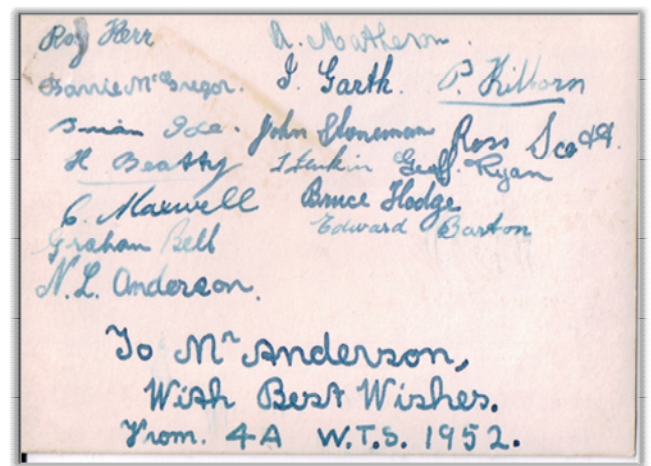 Roy Kerr A. Matheson.
Barrie McGregor. I. Garth. P. Kilborn
Brian John Stoneman Ross Scott.
H Beatty Geoff. Ryan
C. Maxwell Bruce Hodge
Graham Bell Edward Barton
N.L. Anderson.
To Mr Anderson,
With Best Wishes.
From. 4A W.T.S. 1952.